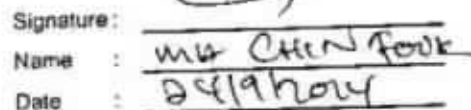 Signature:
Name : CHIN FOOK
Date : 24/9/2014